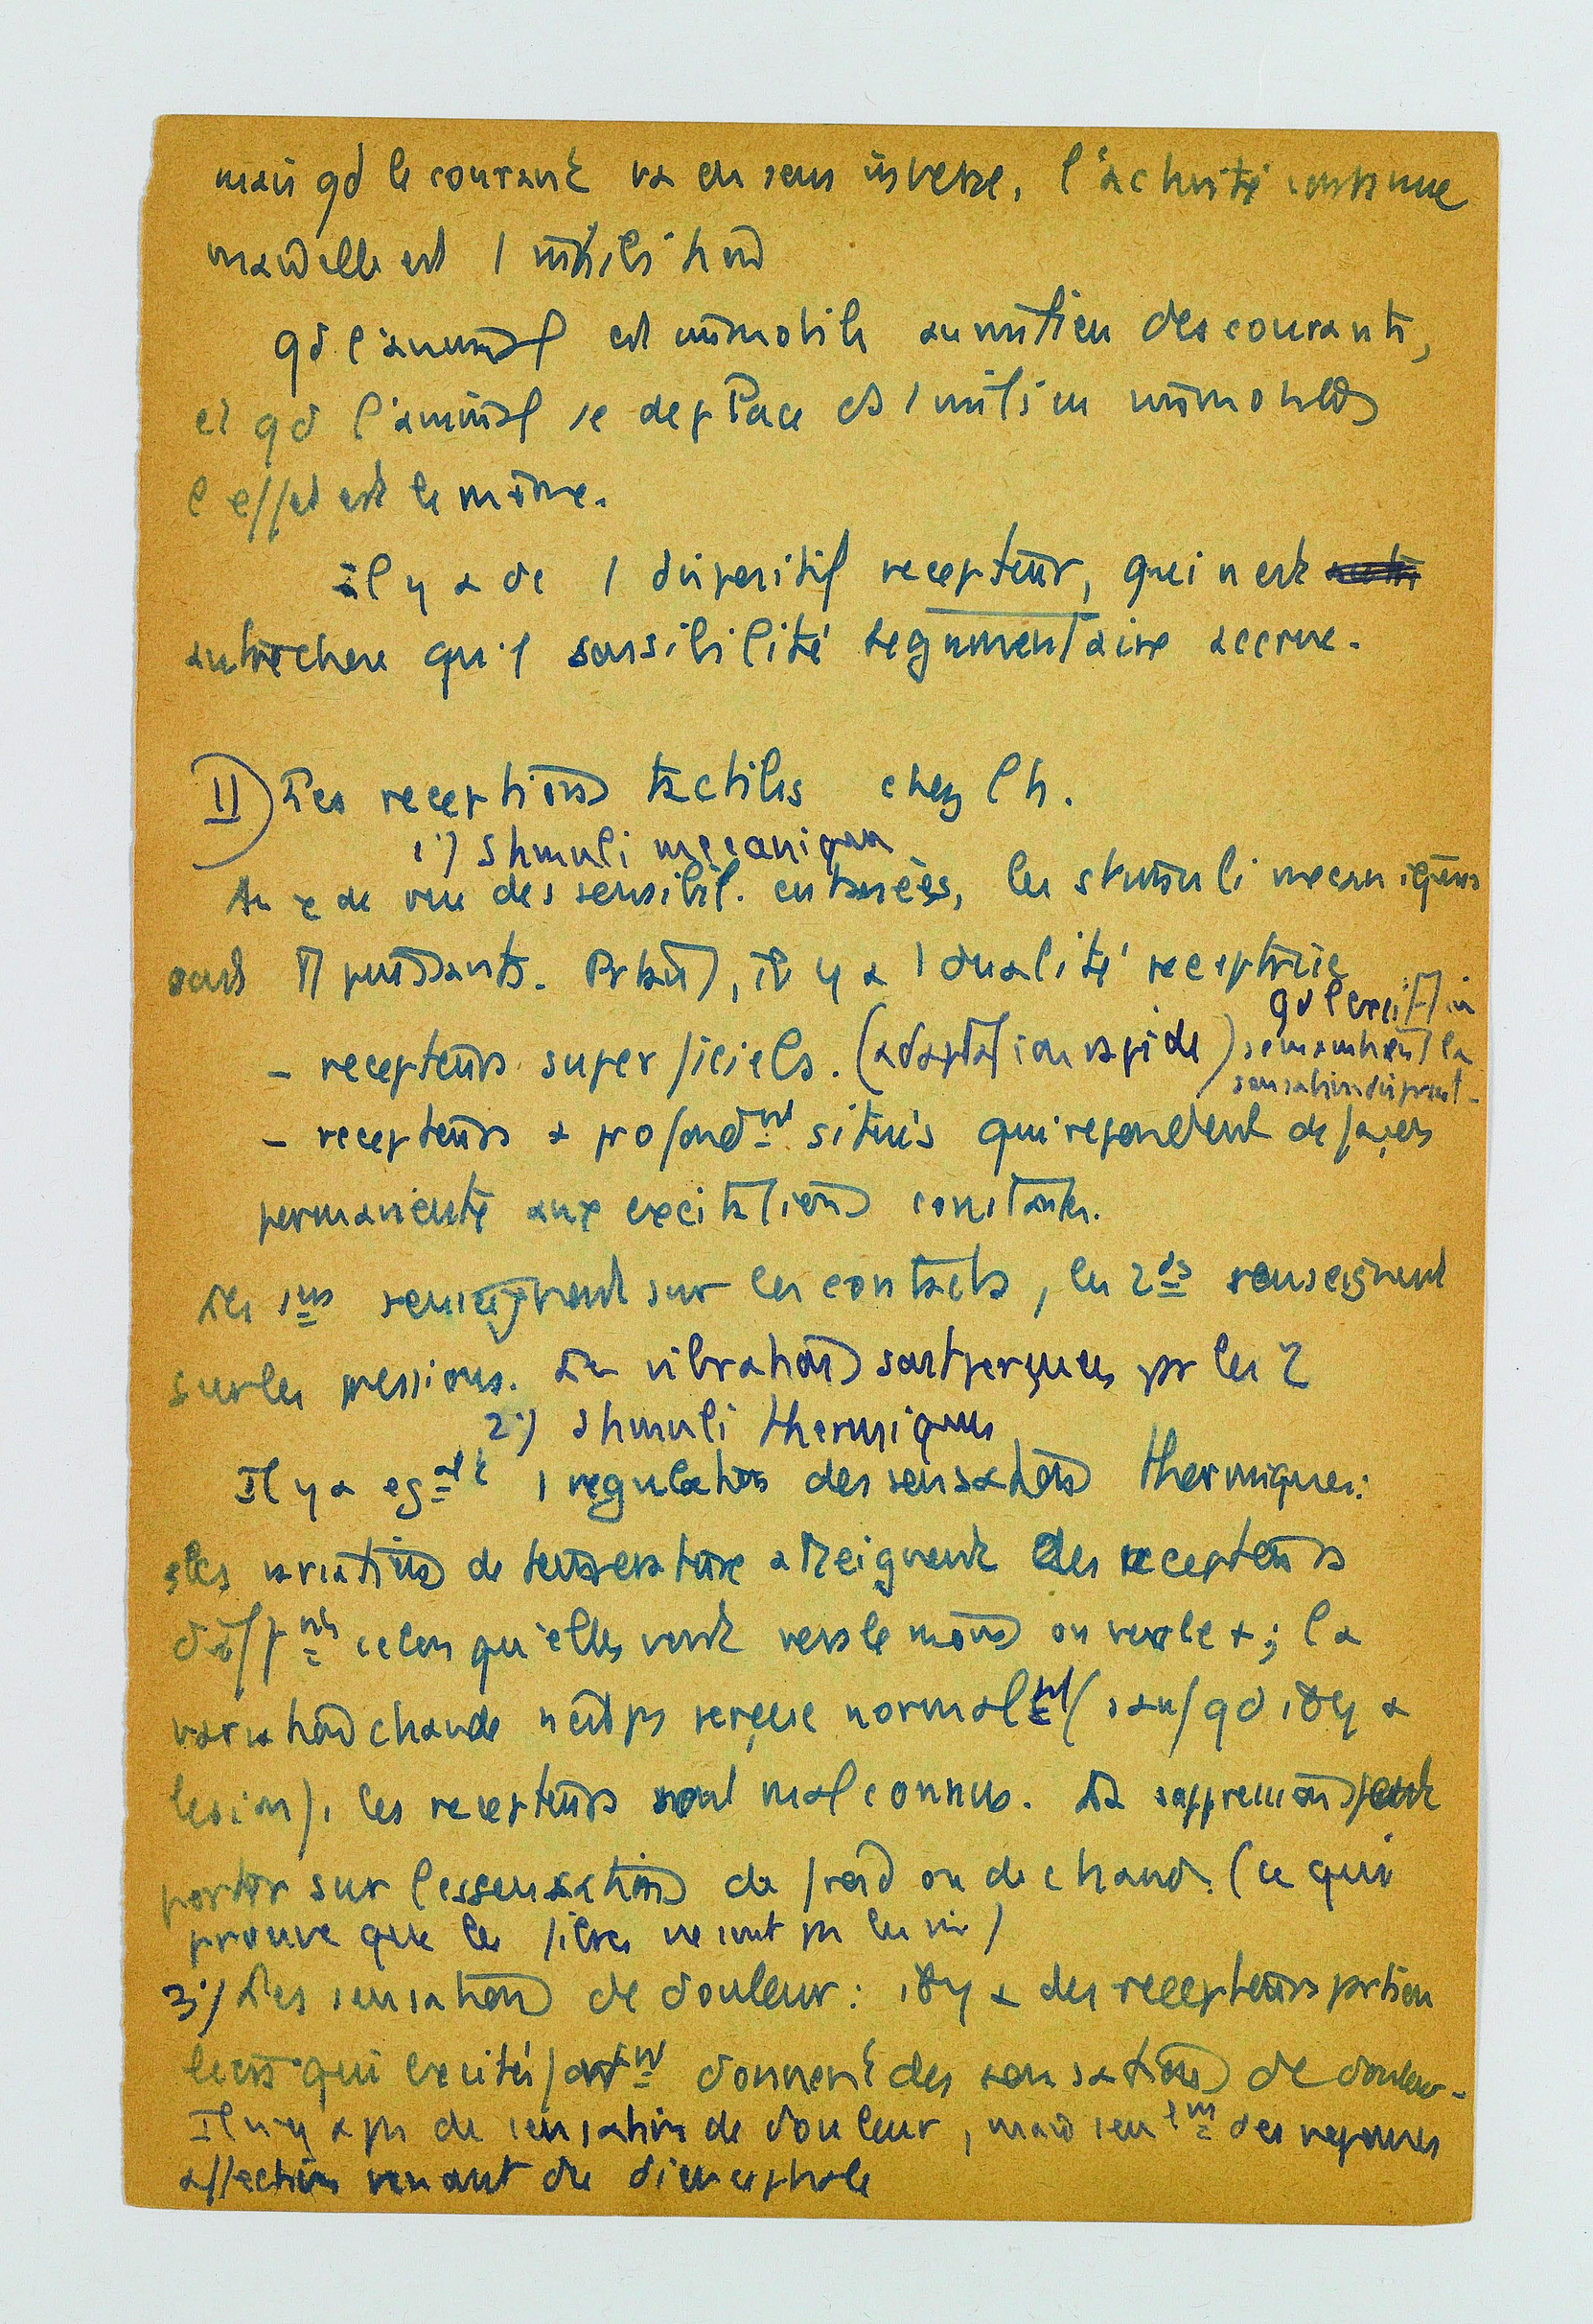 mais qd le courant va en sens inverse, l'activité continue
mais elle est 1 inhibition
qd l'animal est immobile au milieu des courants,
et qd l'animal se deplace ds 1 milieu immobile
l'effet est le même.
il y a dc 1 dispositif recepteur, qui n'est
autre chose qu'1 sensibilité tegumentaire accrue.
II) Les receptions tactiles chez l'h.
1°) Stimuli mecaniques
Au pt de vue des sensibil. cutanées, les stimuli mecaniques
sont puissants. Prtant, il y a 1 dualité receptrice
qd l'excitation
- recepteurs superficiels. (adaptation rapide) se maintient la
sensation disparait.
- recepteurs + profondmt situés qui repondent de façon
permanente aux excitations constantes.
Les 1ers renseignent sur les contacts, les 2ds renseignent
sur les pressions. Les vibrations sont perçues pr les 2
2°) Stimuli thermiques
Il y a egalt 1 regulation des sensations thermiques:
les variations de temperature atteignent des recepteurs
difftnts selon qu'elles vont vers le moins ou vers le +; la
variation chaude n'est ps perçue normalemt (sauf qd il y a
lesion), les recepteurs sont mal connus. La suppression peut
porter sur les sensations de froid ou de chaud. (ce qui
prouve que les fibres ne sont ps les mm)
3°) Les sensations de douleur: il y a des recepteurs prticu
liers qui excités fortmt donnent des sensations de douleur.
Il n'y a ps de sensation de douleur, mais seulmt des reponses
affectives venant du diencephale